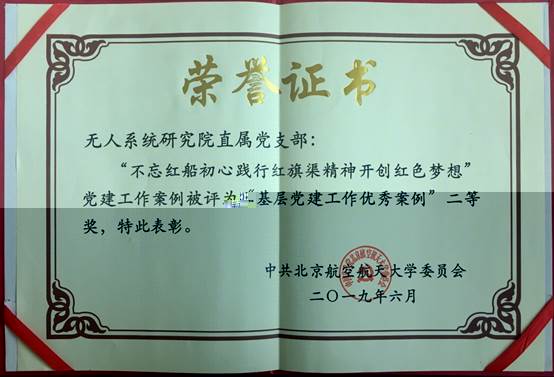 荣誉证书
无人系统研究院直属党支部：
“不忘红船初心践行红旗渠精神开创红色梦想”
党建工作案例被评为“基层党建工作优秀案例”二等
奖，特此表彰。
中共北京航空航天大学委员会
二〇一九年六月